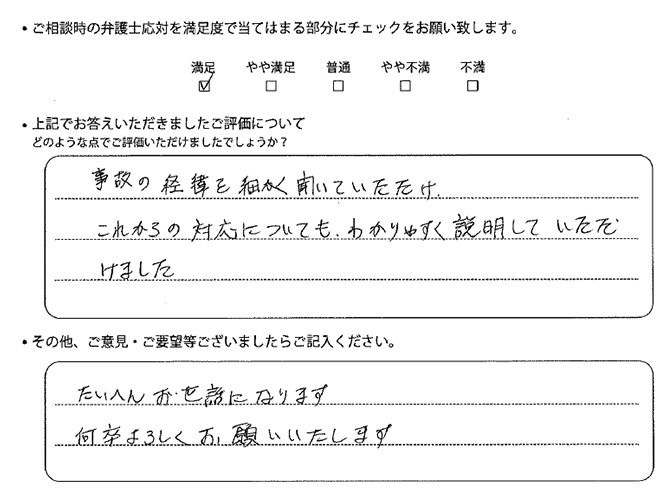 ・ご相談時の弁護士応対を満足度で当てはまる部分にチェックをお願い致します。
満足 やや満足 普通 やや不満 不満
☑ ☐ ☐ ☐ ☐
・上記でお答えいただきましたご評価について
どのような点でご評価いただけましたでしょうか？
事故の経緯を細かく聞いていただけ、
これからの対応についても、わかりやすく説明していただ
けました
・その他、ご意見・ご要望等ございましたらご記入ください。
たいへんお世話になります
何卒よろしくお願いいたします